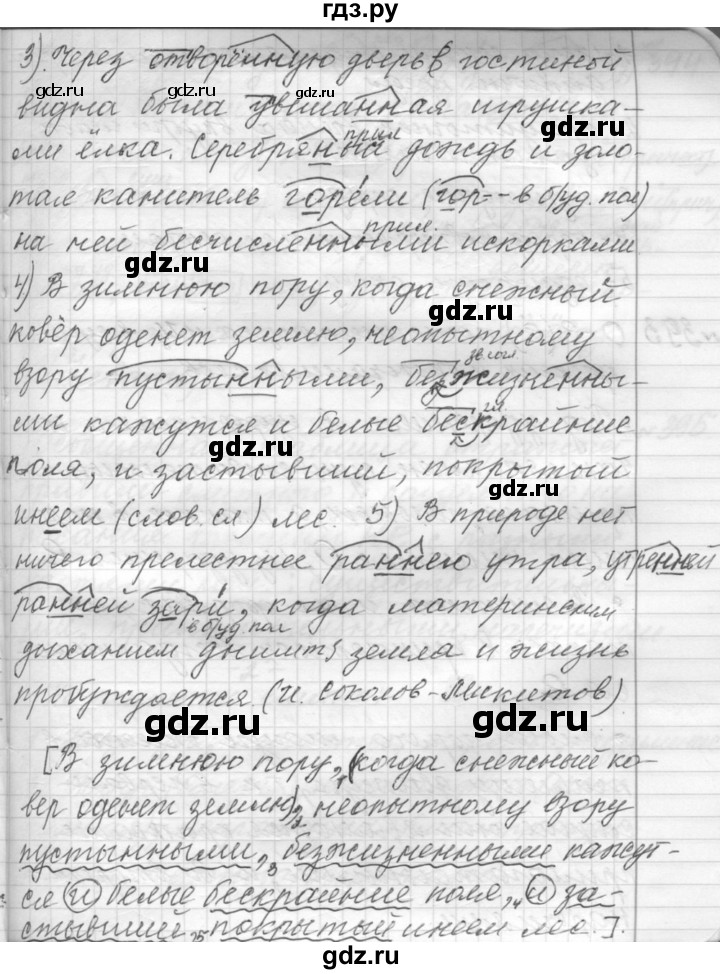 гдз.ру
3). Через отворённую дверь в гостиной
gdz.ru gdz.ru
видна была увешанная игрушка-
gdz.ru
прил
ми ёлка. Серебрянный дождь и золо-
gdz.ru
тая канитель горели (гор= - в буд. пол)
прил.
на ней бесчисленными искорками
gdz.ru
4) В зимнюю пору, когда снежный
gdz.ru
ковёр оденет землю, неопытному
зв согл
взору пустынными, безжизненны-
гл
ми кажутся и белые бескрайние
gdz.ru
поля, и застывший, покрытый
gdz.ru
инеем (слов. сл) лес. 5) В природе нет
ничего прелестнее раннего утра, утренней
gdz.ru
ранней зари, когда материнским
в буд пол
дыханием дымит земля и жизнь
пробуждается (И. Соколов-Микитов)
gdz.ru gdz.ru
[В зимнюю пору, (когда снежный ко-
вер оденет землю), неопытному взору
пустынными, безжизненными кажут-
ся и белые бескрайние поля, и за-
стывший, покрытый инеем лес.].
gdz.ru gdz.ru